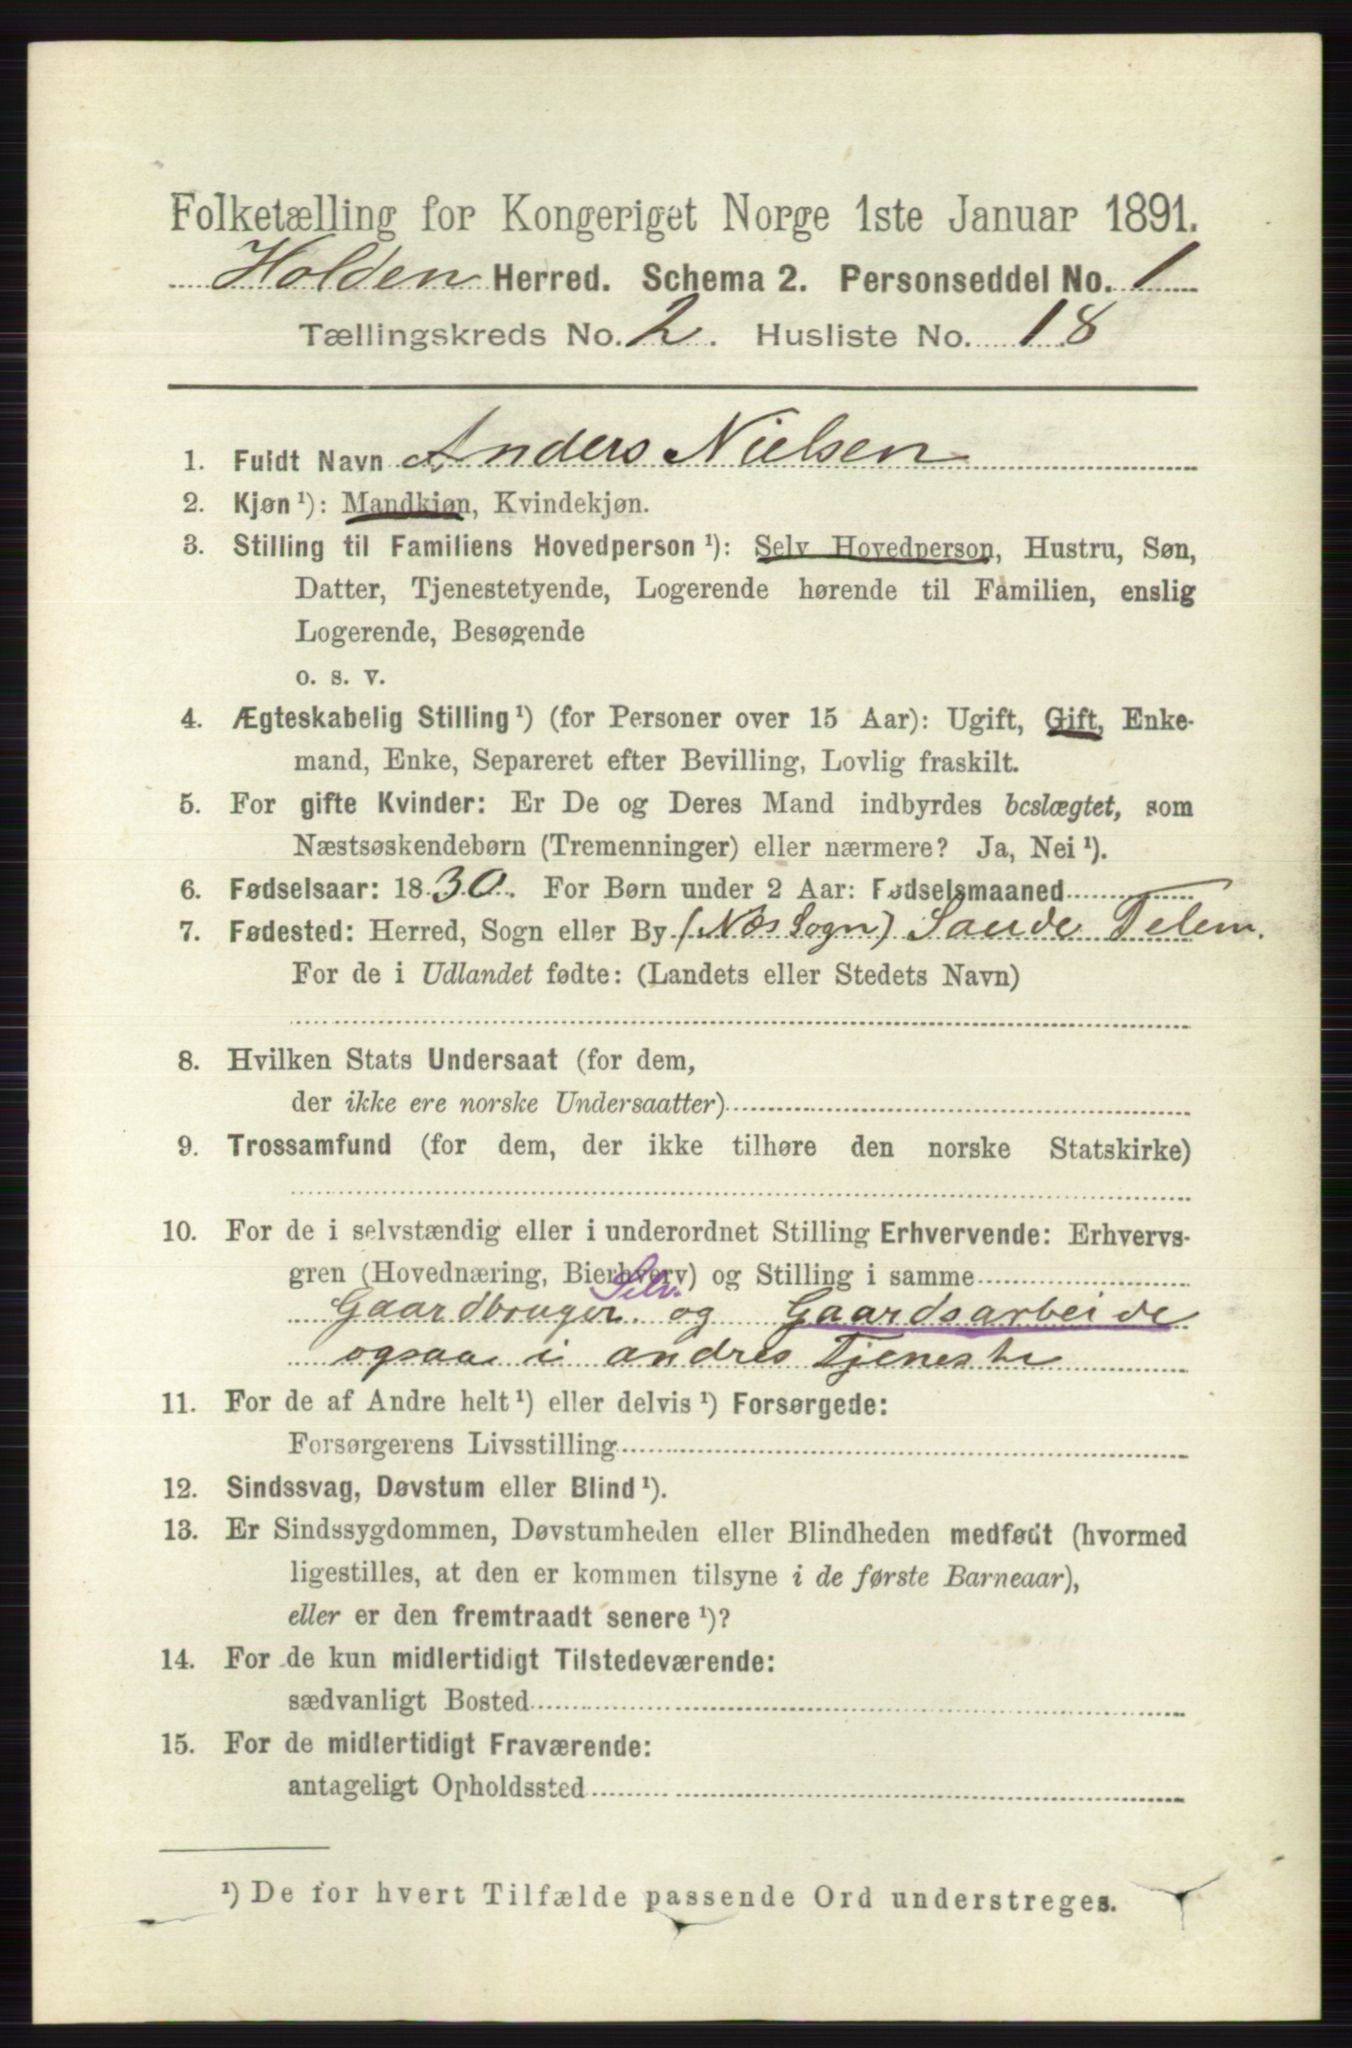 Folketælling for Kongeriget Norge 1ste Januar 1891.
Holden Herred. Schema 2. Personseddel No. 1
Tællingskreds No. 2. Husliste No. 18
1. Fuldt Navn Anders Nielsen
2. Kjøn ¹): Mandkjøn, Kvindekjøn.
3. Stilling til Familiens Hovedperson ¹): Selv Hovedperson, Hustru, Søn,
Datter, Tjenestetyende, Logerende hørende til Familien, enslig
Logerende, Besøgende
o. s. v.
4. Ægteskabelig Stilling ¹) (for Personer over 15 Aar): Ugift, Gift, Enke-
mand, Enke, Separeret efter Bevilling, Lovlig fraskilt.
5. For gifte Kvinder: Er De og Deres Mand indbyrdes beslægtet, som
Næstsøskendebørn (Tremenninger) eller nærmere? Ja, Nei ¹).
6. Fødselsaar: 1830. For Børn under 2 Aar: Fødselsmaaned
7. Fødested: Herred, Sogn eller By (Næs Sogn) Saude Telem.
For de i Udlandet fødte: (Landets eller Stedets Navn)
8. Hvilken Stats Undersaat (for dem,
der ikke ere norske Undersaatter)
9. Trossamfund (for dem, der ikke tilhøre den norske Statskirke)
10. For de i selvstændig eller i underordnet Stilling Erhvervende: Erhvervs-
gren (Hovednæring, Bierhverv) og Stilling i samme
Selv.
Gaardbruger. og Gaardsarbeide
ogsaa i andres Tjeneste
11. For de af Andre helt ¹) eller delvis ¹) Forsørgede:
Forsørgerens Livsstilling
12. Sindssvag, Døvstum eller Blind ¹).
13. Er Sindssygdommen, Døvstumheden eller Blindheden medfødt (hvormed
ligestilles, at den er kommen tilsyne i de første Barneaar),
eller er den fremtraadt senere ¹)?
14. For de kun midlertidigt Tilstedeværende:
sædvanligt Bosted
15. For de midlertidigt Fraværende:
antageligt Opholdssted
¹) De for hvert Tilfælde passende Ord understreges.